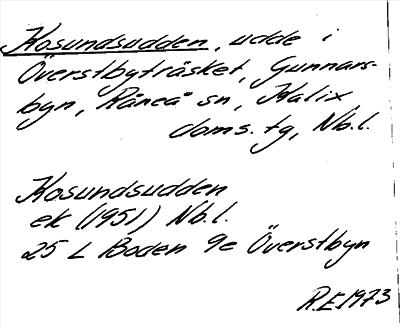 Kosundsudden, udde i
Överstbyträsket, Gunnars-
byn, Råneå sn, Kalix
doms. tg, Nb.l.
Kosundsudden
ek (1951) Nb.l.
25 L Boden 9e Överstbyn
R.E. 1973